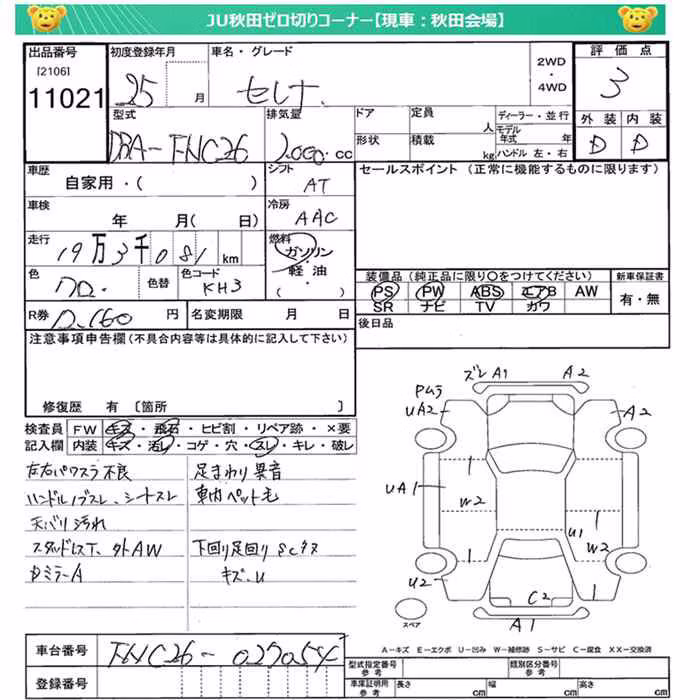 JU秋田ゼロ切りコーナー【現車：秋田会場】
出品番号 初度登録年月 車名・グレード 2WD・4WD 評価点
[2106]
11021 25 月 セレナ 3
型式 排気量 ドア 定員 人 ディーラー・並行 外装 内装
DBA-FNC26 2,000 cc 形状 積載 kg モデル年式 年 ハンドル 左・右 D D
車歴 シフト セールスポイント（正常に機能するものに限ります）
自家用・（ ） AT
車検 冷房
年 月（ 日） AAC
走行 燃料
19万3千081km ガソリン・軽油・（ ）
色 色替 色コード 装備品（純正品に限り○をつけてください） 新車保証書
KH3 PS PW ABS エアB AW 有・無
SR ナビ TV カワ
R券 円 名変期限 月 日 後日品
注意事項申告欄（不具合内容等は具体的に記入して下さい）
修復歴 有 〔箇所 〕
検査員 FW キズ・飛石・ヒビ割・リペア跡・×要
記入欄 内装 キズ・汚レ・コゲ・穴・スレ・キレ・破レ
左右パワスラ不良 足まわり異音
ハンドルノブスレ、シートスレ 車内ペット毛
天バリ汚れ
スタッドレス 外AW 下回り足回りSC
ミラーA キズ、U
ズレ A1 A2
UA2 A2
UA1
W2
U1 W2
U2
C2
A1
スペア
A－キズ E－エクボ U－凹み W－補修跡 S－サビ C－腐食 XX－交換済
車台番号 型式指定番号 参考 類別区分番号 参考
登録番号 車庫証明用 参考 長さ cm 幅 cm 高さ cm